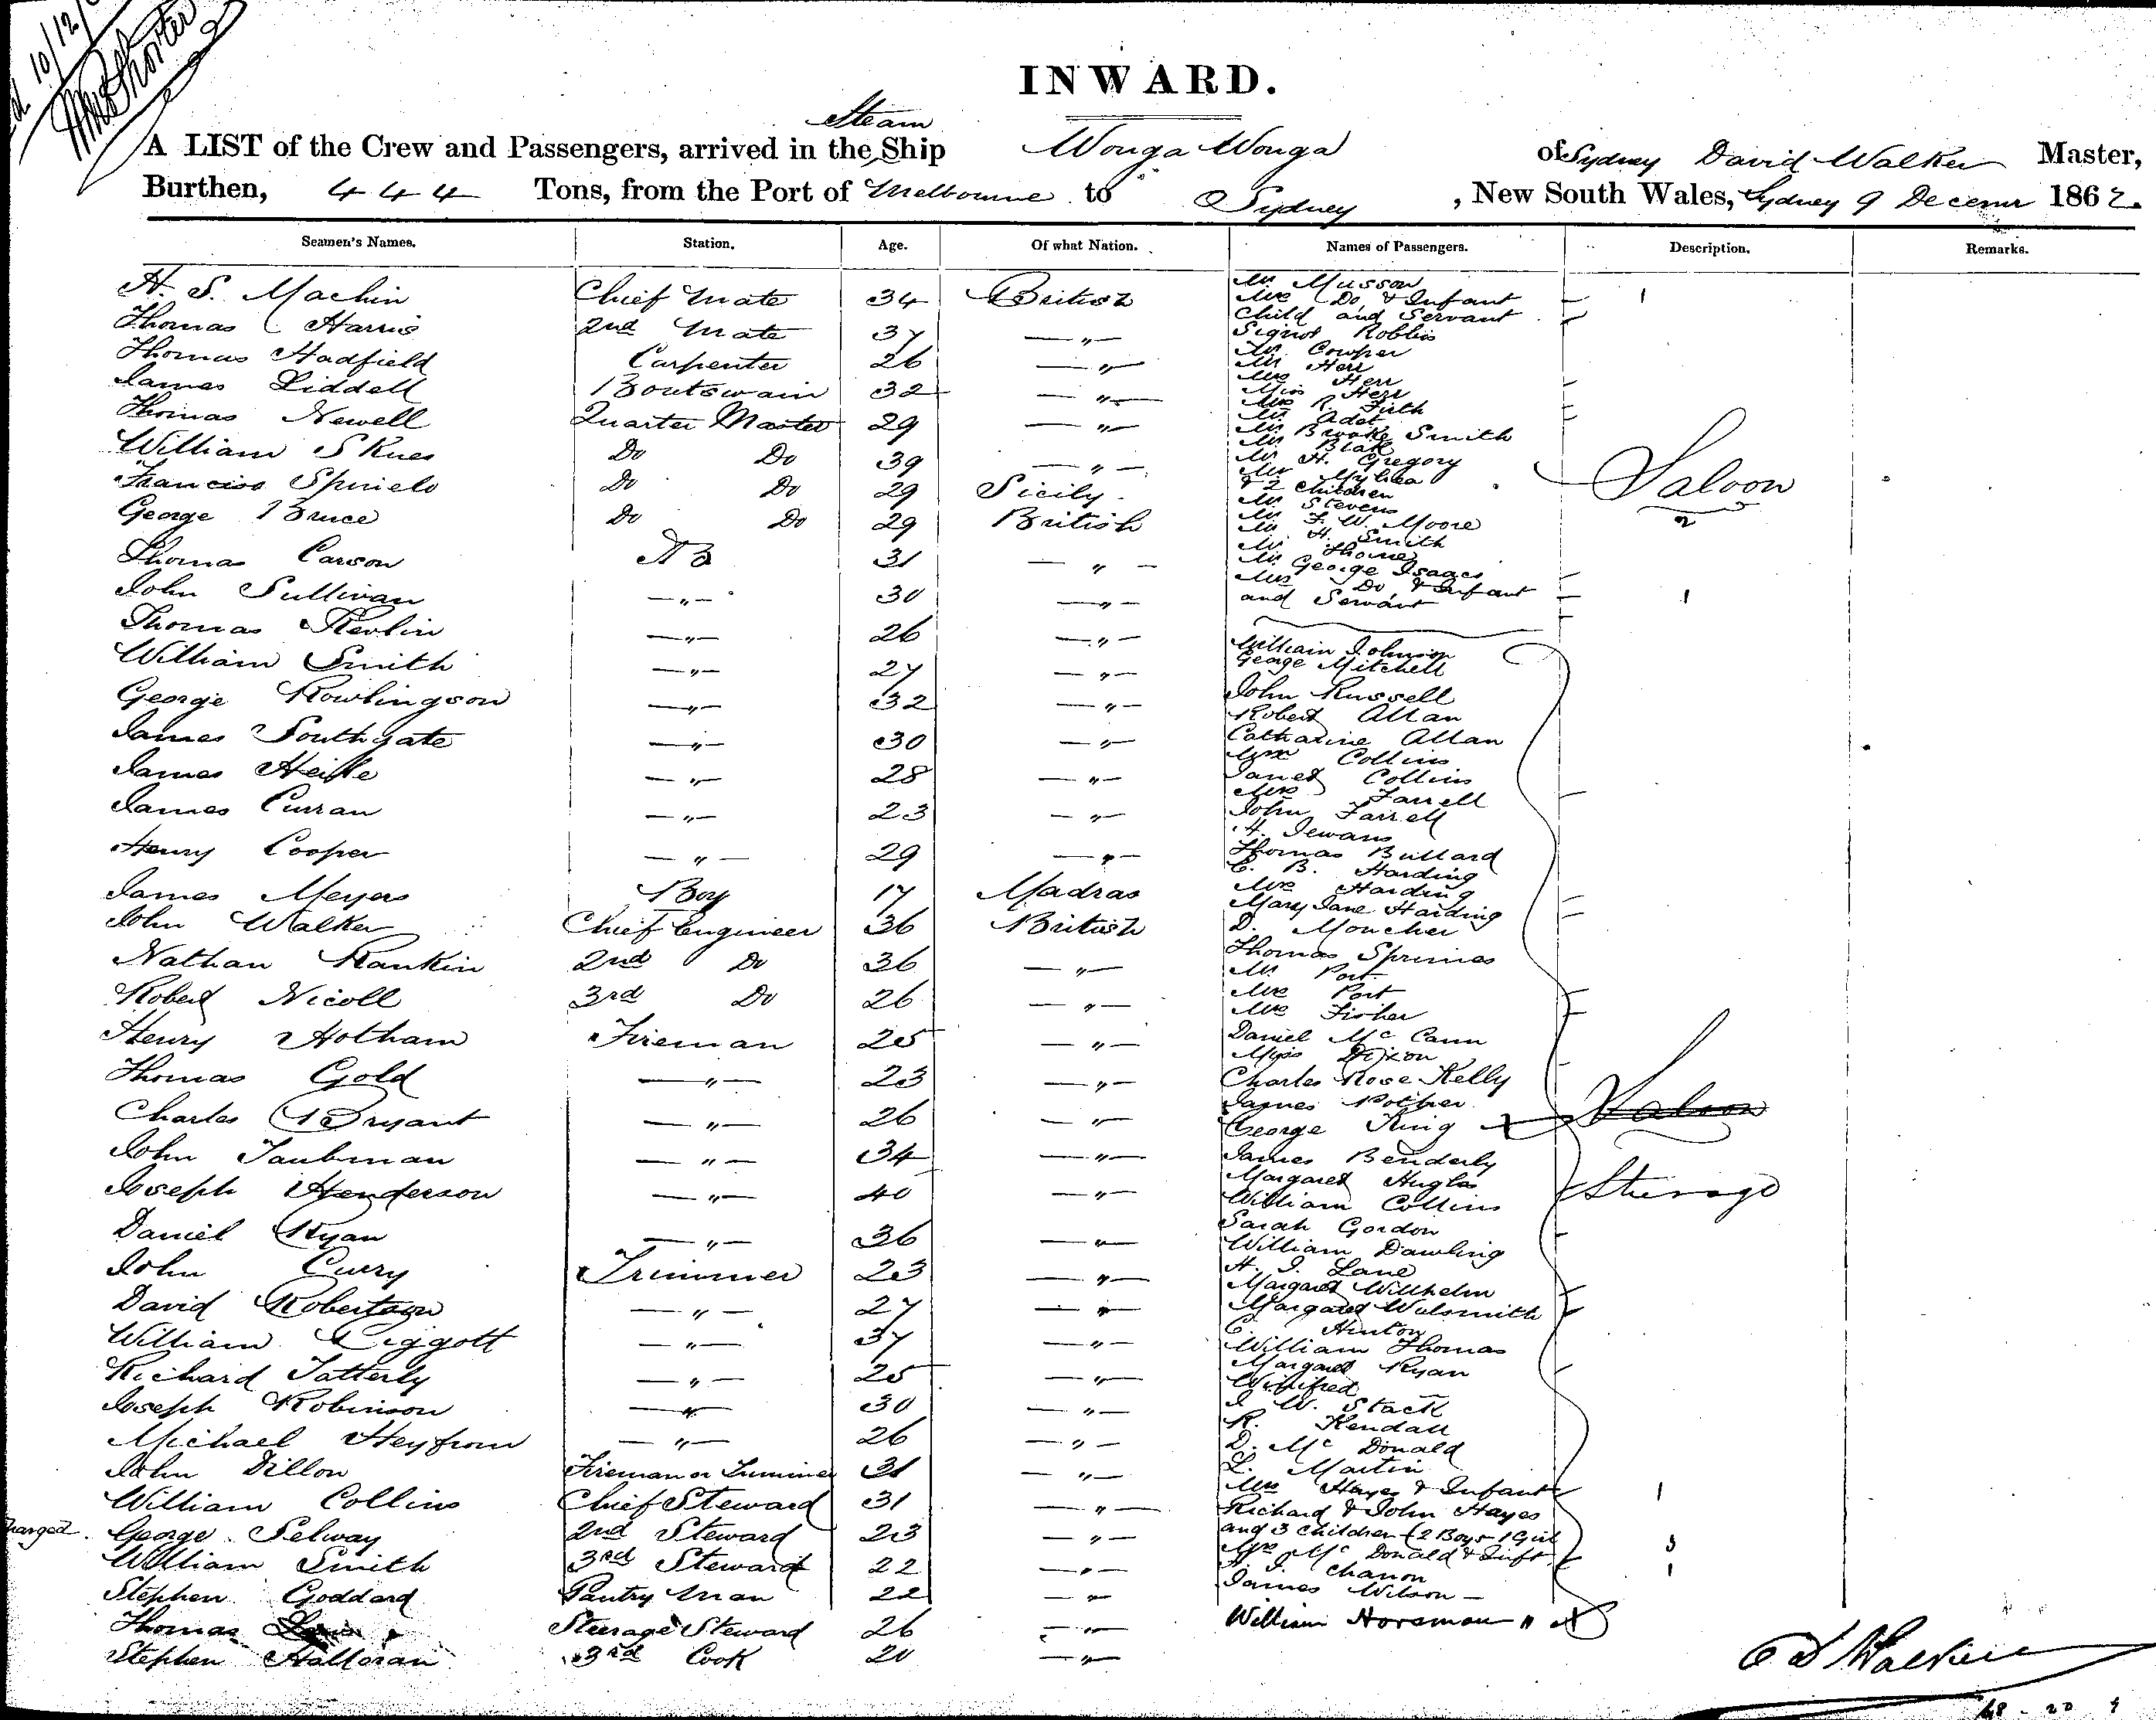 10/12/
INWARD.
Steam
A LIST of the Crew and Passengers, arrived in the Ship Wonga Wonga of Sydney David Walker Master,
Burthen, 444 Tons, from the Port of Melbourne to Sydney, New South Wales, Sydney 9 Decemr 1862.
Seamen's Names. Station. Age. Of what Nation. Names of Passengers. Description. Remarks.
H. S. Machin Chief Mate 34 British
Thomas Harris 2nd Mate 37 — " —
Thomas Hadfield Carpenter 26 — " —
James Liddell Boatswain 32 — " —
Thomas Newell Quarter Master 29 — " —
William Skues Do Do 39 — " —
Francisco Do Do 29 Sicily
George Bruce Do Do 29 British
Thomas Carson AB 31 — " —
John Sullivan — " — 30 — " —
Thomas — " — 26 — " —
William Smith — " — 27 — " —
George Rowlingson — " — 32 — " —
James Southgate — " — 30 — " —
James — " — 28 — " —
James Curran — " — 23 — " —
Henry Cooper — " — 29 — " —
James Meyers Boy 17 Madras
John Walker Chief Engineer 36 British
Nathan Rankin 2nd Do 36 — " —
Robert Nicoll 3rd Do 26 — " —
Henry Hotham Fireman 25 — " —
Thomas Gold — " — 23 — " —
Charles Bryant — " — 26 — " —
John Taubman — " — 34 — " —
Joseph Henderson — " — 40 — " —
Daniel Ryan — " — 36 — " —
John Curry Trimmer 23 — " —
David Robertson — " — 27 — " —
William Liggott — " — 37 — " —
Richard Tatterly — " — 25 — " —
Joseph Robinson — " — 30 — " —
Michael — " — 26 — " —
John Dillon Fireman or Trimmer 31 — " —
William Collins Chief Steward 31 — " —
George Selway 2nd Steward 23 — " —
William Smith 3rd Steward 22 — " —
Stephen Goddard Pantry Man 22 — " —
Thomas Steerage Steward 26 — " —
Stephen Halloran 3rd Cook 20 — " —
Mr. Musson
Mrs Do & Infant 1
Child and Servant
Signor Robbio
Mr. Cowper
Mr Herr
Mrs Herr
Miss Herr
Mrs R. Firth
Mr. Adet
Mr Brooke Smith
Mr Blak
Mr H. Gregory
Mrs Mylrea
& 2 children 2
Mr Stevens
Mr F. W. Moore
Mr H. Smith
Mr Thorne
Mr. George Isaacs
Mrs Do, & Infant 1
and Servant
Saloon
William Johnson
George Mitchell
John Russell
Robert Allan
Catharine Allan
Wm Collins
Janet Collins
Mrs Farrell
John Farrell
H. Iewans
Thomas Bullard
C. B. Harding
Mrs Harding
Mary Jane Harding
D. Moucher
Thomas
Mr. Port
Mrs Port
Mrs Fisher
Daniel Mc Cann
Miss Dixon
Charles Rose Kelly
James Rother
George King
Saloon
James Benderly
Margaret Hughes
William Collins
Sarah Gordon
William Dawling
H. J. Lane
Margaret Willhelm
Margaret Wulsmith
C. Hinton
William Thomas
Margaret Ryan
Winifred
J. W. Stack
R. Kendall
D. Mc Donald
L. Martin
Mrs Hayes & Infant 1
Richard & John Hayes
and 3 children (2 Boys 1 Girl 3
Mrs Mc Donald & Inft 1
F. J. Chanon
James Wilson —
William Horsman "
Steerage
D Walker